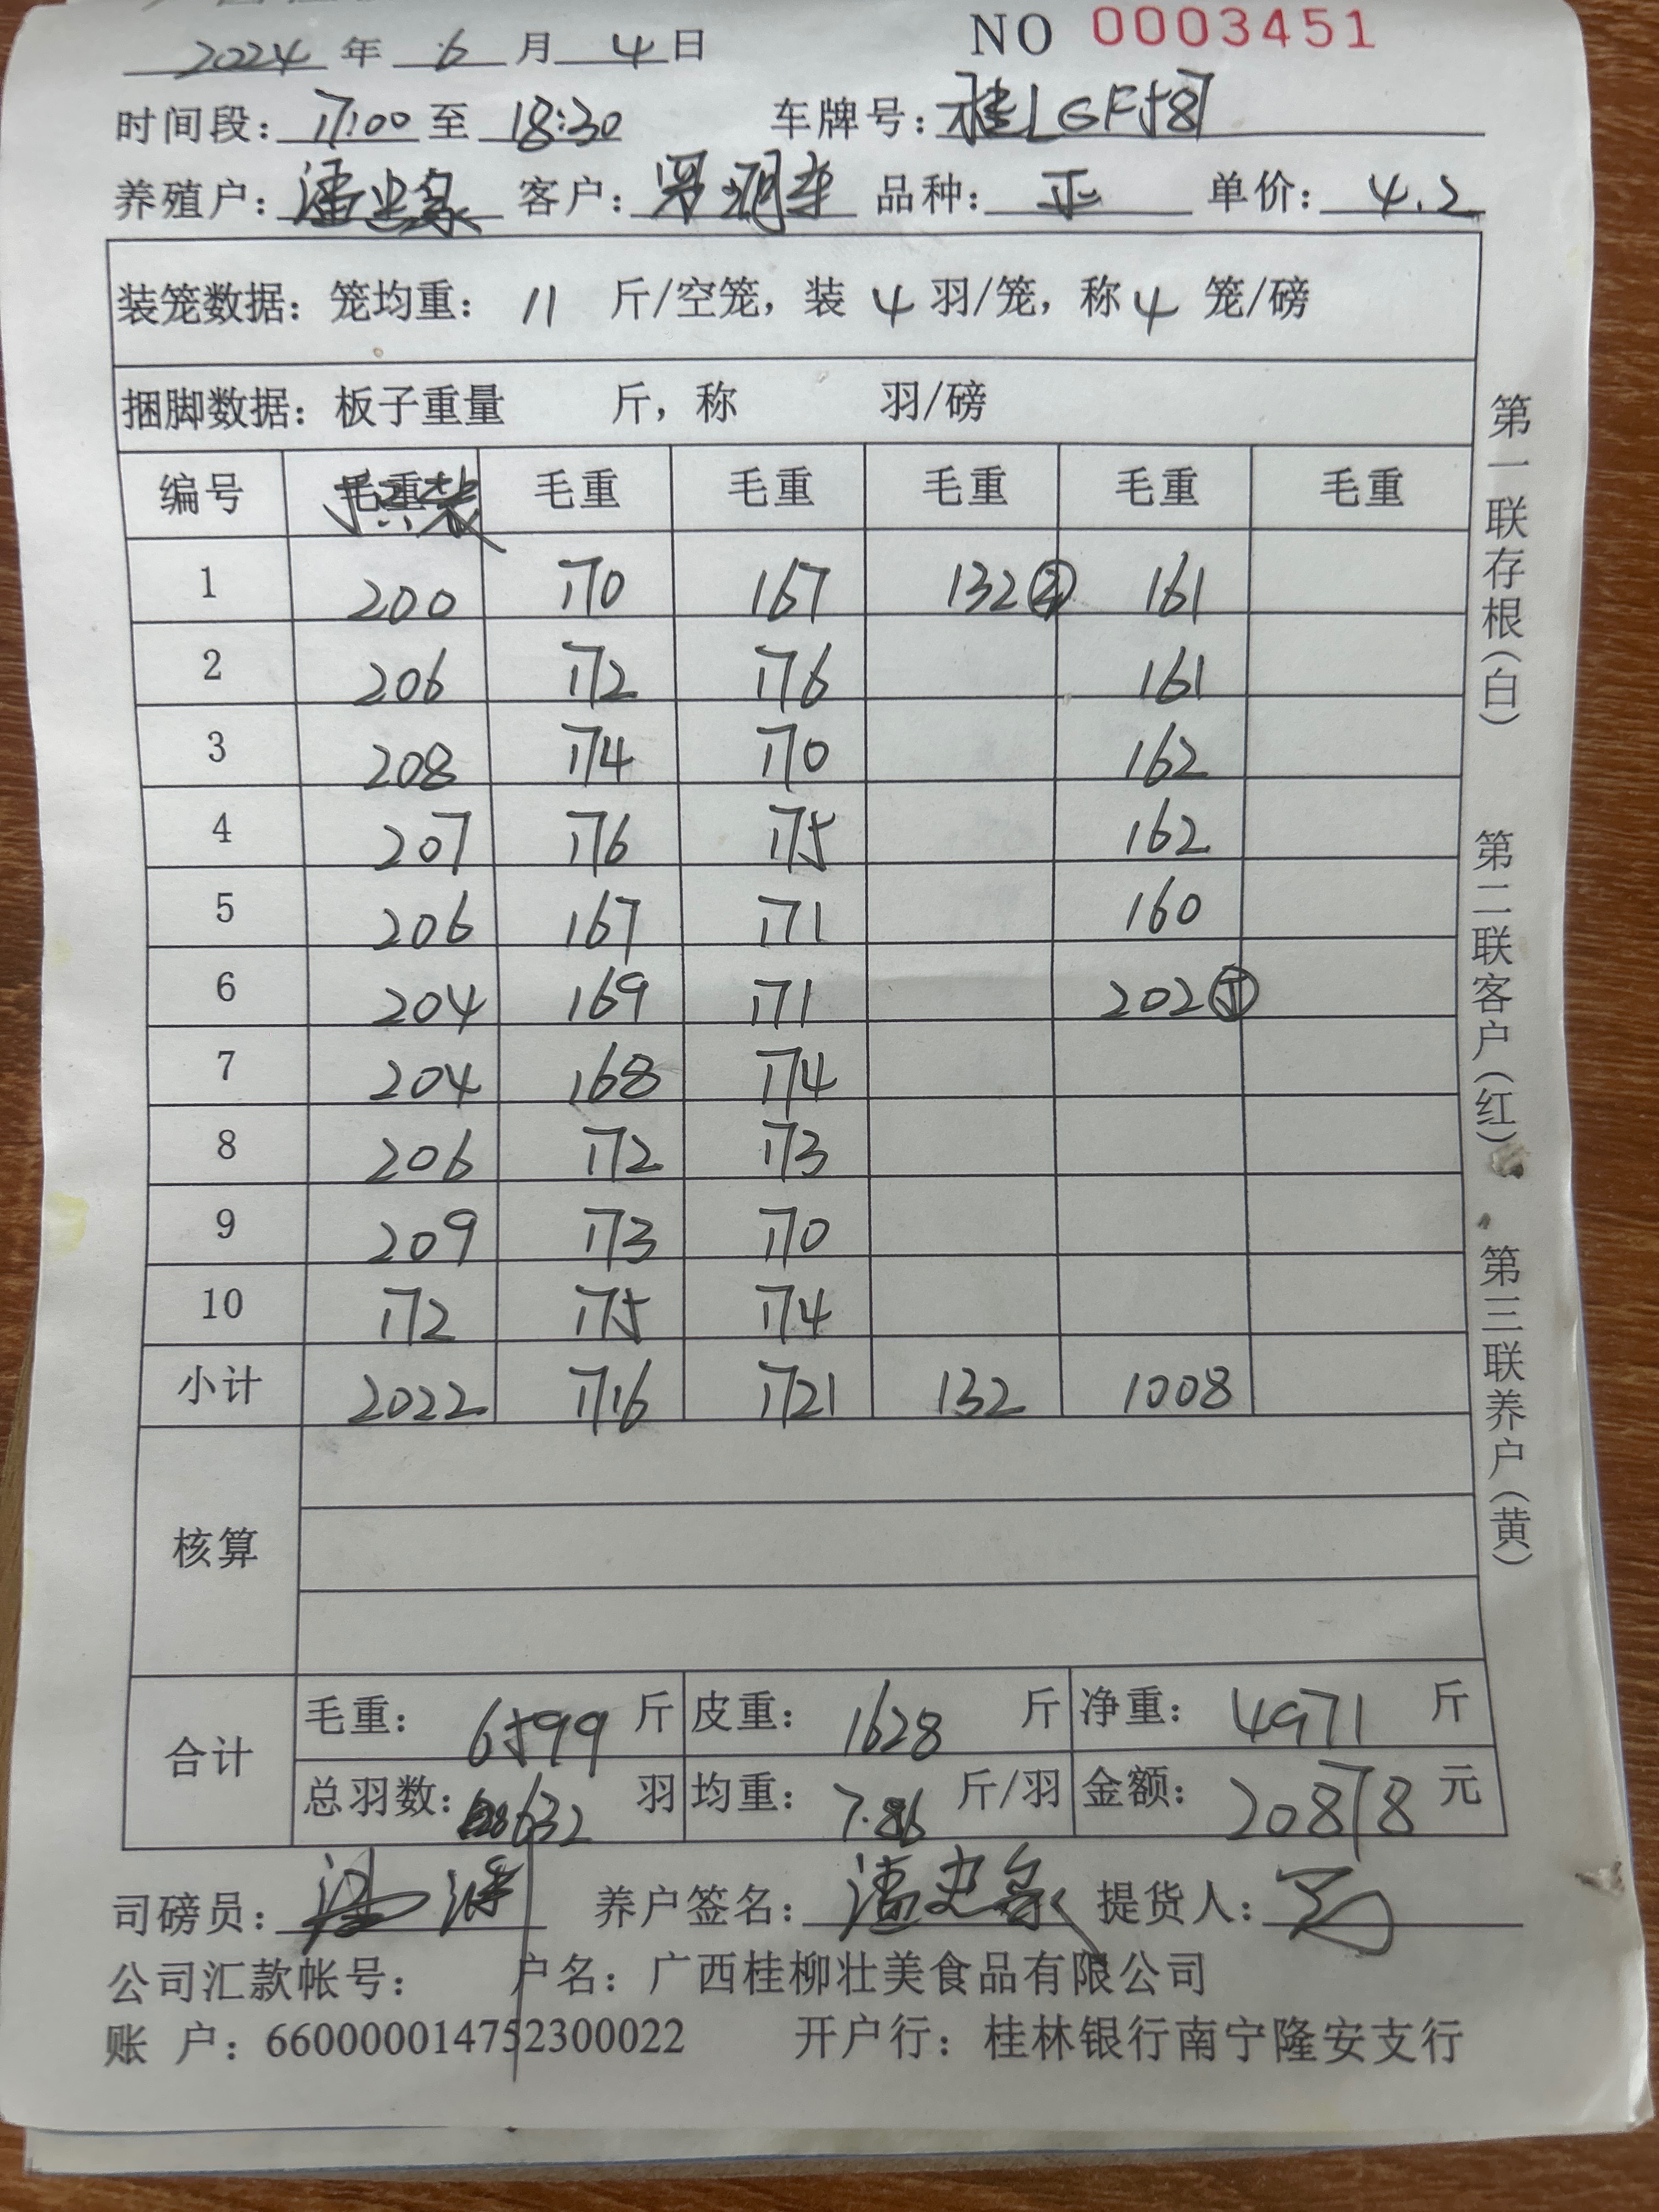 2024 年 6 月 4 日 NO 0003451
时间段: 17:00 至 18:30 车牌号: 桂LGF587
养殖户: 潘史象 客户: 罗明华 品种: 正 单价: 4.2
装笼数据: 笼均重: 11 斤/空笼, 装 4 羽/笼, 称 4 笼/磅
捆脚数据: 板子重量 斤, 称 羽/磅
编号 毛重 毛重 毛重 毛重 毛重 毛重
1 200 170 167 132③ 161
2 206 172 176 161
3 208 174 170 162
4 207 176 175 162
5 206 167 171 160
6 204 169 171 202⑤
7 204 168 174
8 206 172 173
9 209 173 170
10 172 175 174
小计 2022 1716 1721 132 1008
核算
合计
毛重: 6599 斤 皮重: 1628 斤 净重: 4971 斤
总羽数: 632 羽 均重: 7.86 斤/羽 金额: 20878 元
司磅员: 养户签名: 潘史象 提货人:
公司汇款帐号: 户名: 广西桂柳壮美食品有限公司
账 户: 660000014752300022 开户行: 桂林银行南宁隆安支行
第一联存根(白) 第二联客户(红) 第三联养户(黄)